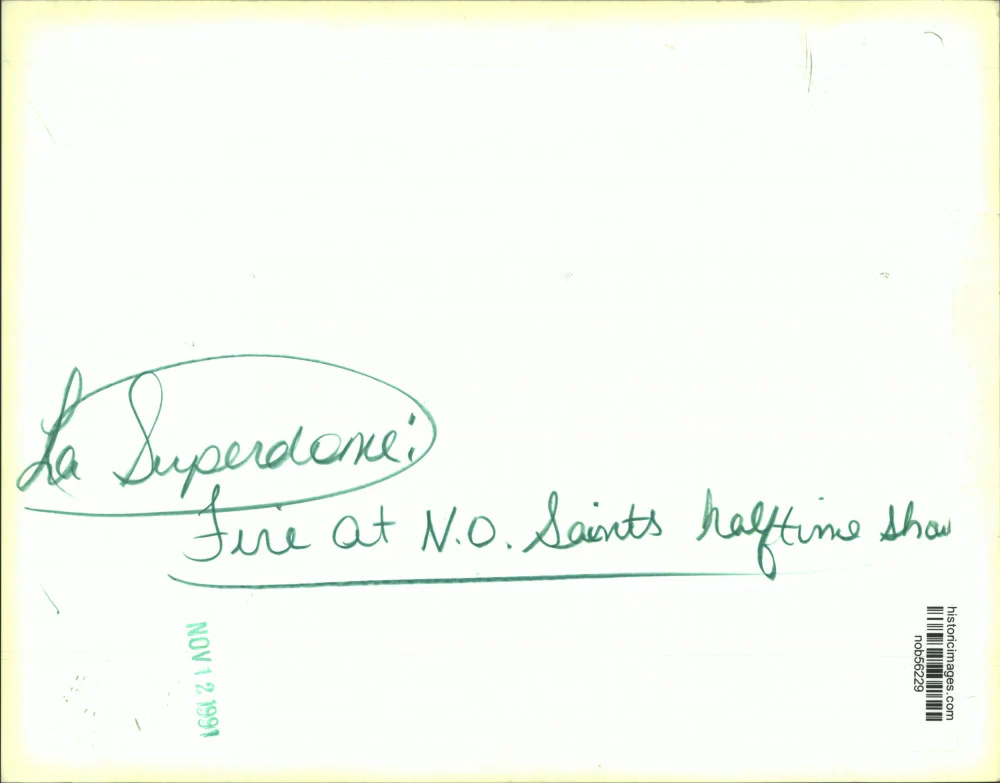 La Superdome:
Fire at N.O. Saints halftime show
NOV 12 1991
historicimages.com
nob56229